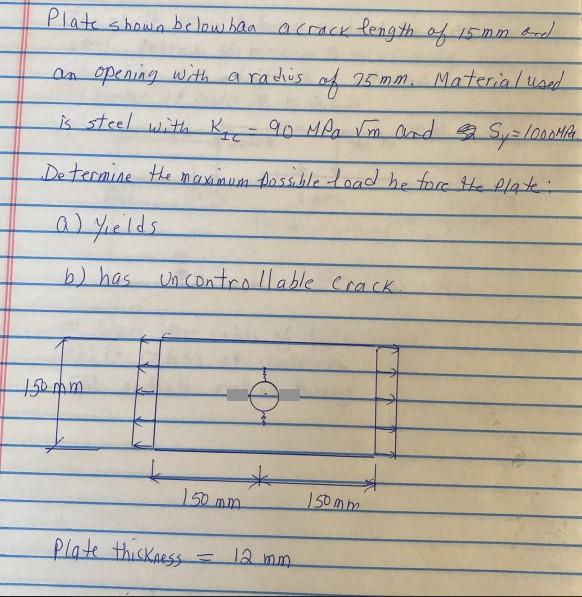 Plate shown below haa a crack length of 15mm and
an opening with a radius of 75mm. Material used
is steel with K_IC = 90 MPa √m and Sy=1000MPa
Determine the maximum possible load before the plate:
a) yields
b) has uncontrollable crack.
150 mm
150 mm 150 mm
Plate thickness = 12 mm